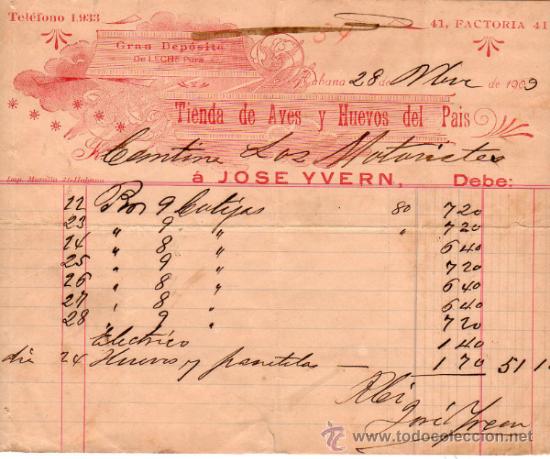 Teléfono 1.933
41, FACTORIA 41
Gran Depósito
De LECHE Pura
Habana 28 de Nbre de 1909
Tienda de Aves y Huevos del Pais
Cantina Los Motoristas
á JOSE YVERN, Debe:
Habana
22 Por 9 Cotijas 80 7 20
23 " 9 " " 7 20
24 " 8 " 6 40
25 " 9 " 7 20
26 " 8 " 6 40
27 " 8 " 6 40
28 " 9 " 7 20
Electrico 1 40
dia 24 Huevos y panetelas — 1 70 51 1
José Yvern
todocoleccion
www.todocoleccion.net